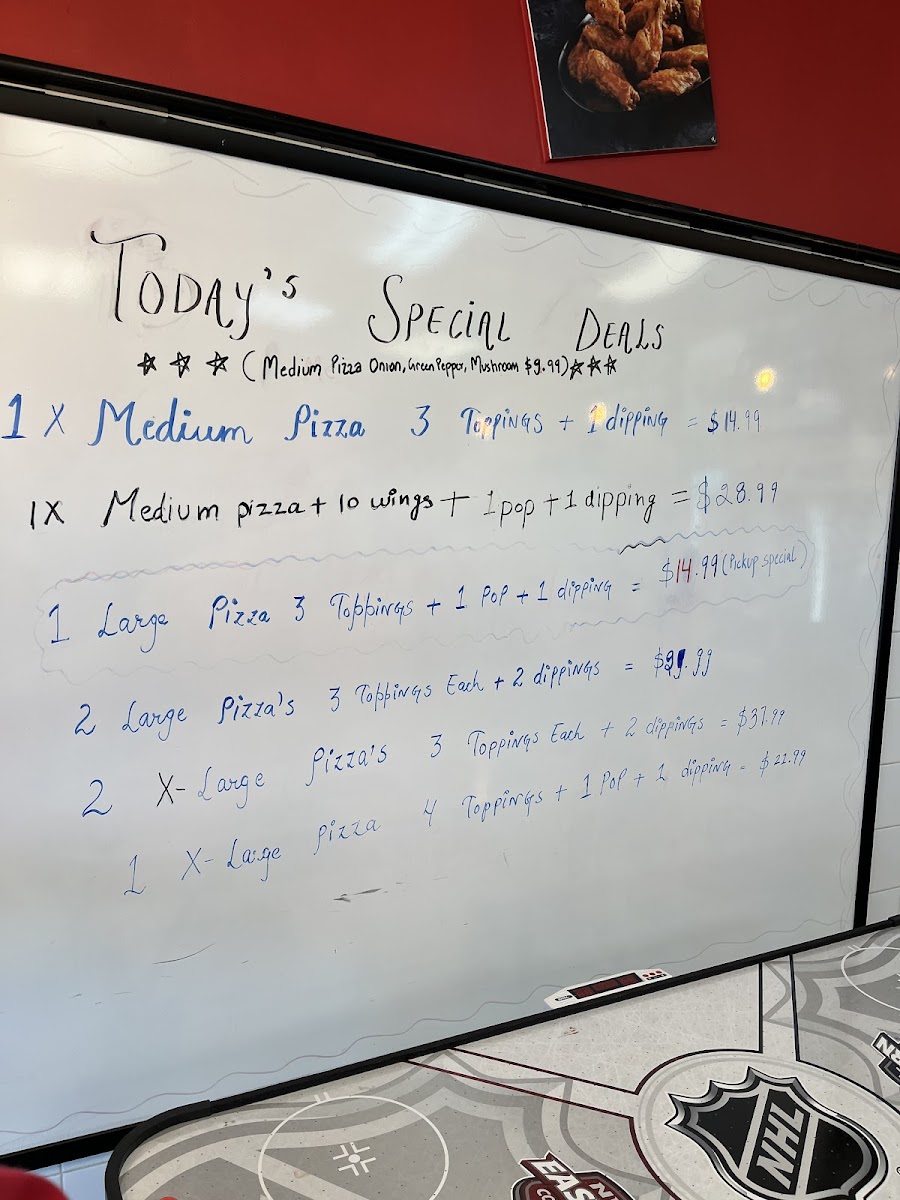 TODAY'S SPECIAL DEALS
(Medium Pizza Onion, Green Pepper, Mushroom $9.99)
1 X Medium Pizza 3 Toppings + 1 dipping = $14.99
1X Medium pizza + 10 wings + 1 pop + 1 dipping = $28.99
1 Large Pizza 3 Toppings + 1 Pop + 1 dipping = $14.99 (Pickup special)
2 Large Pizza's 3 Toppings Each + 2 dippings =
2 X-Large Pizza's 3 Toppings Each + 2 dippings = $37.99
1 X-Large pizza 4 Toppings + 1 Pop + 1 dipping = $21.99
NHL